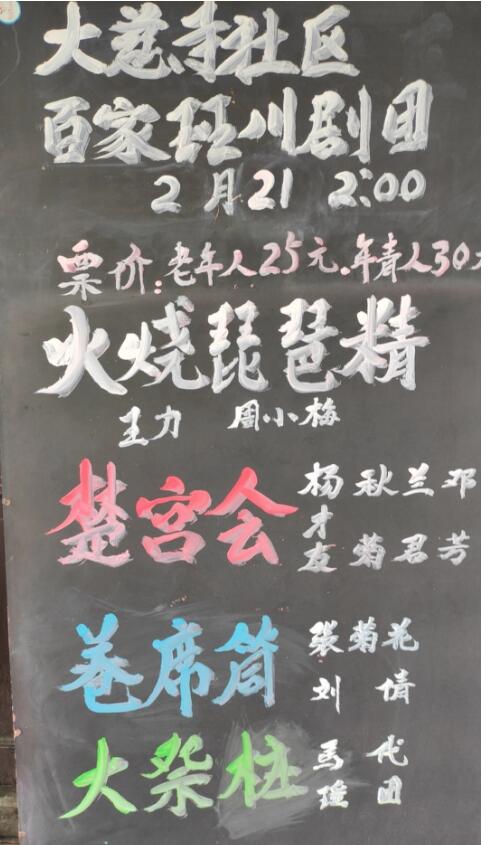 大慈寺社区
百家班川剧团
2月21 2:00
票价:老年人25元.年青人30
火烧琵琶精
王力 周小梅
楚宫会
杨 秋 兰 邓
才
友 菊 君 芳
卷席筒
张菊花
刘 倩
大祭桩
马 代
团